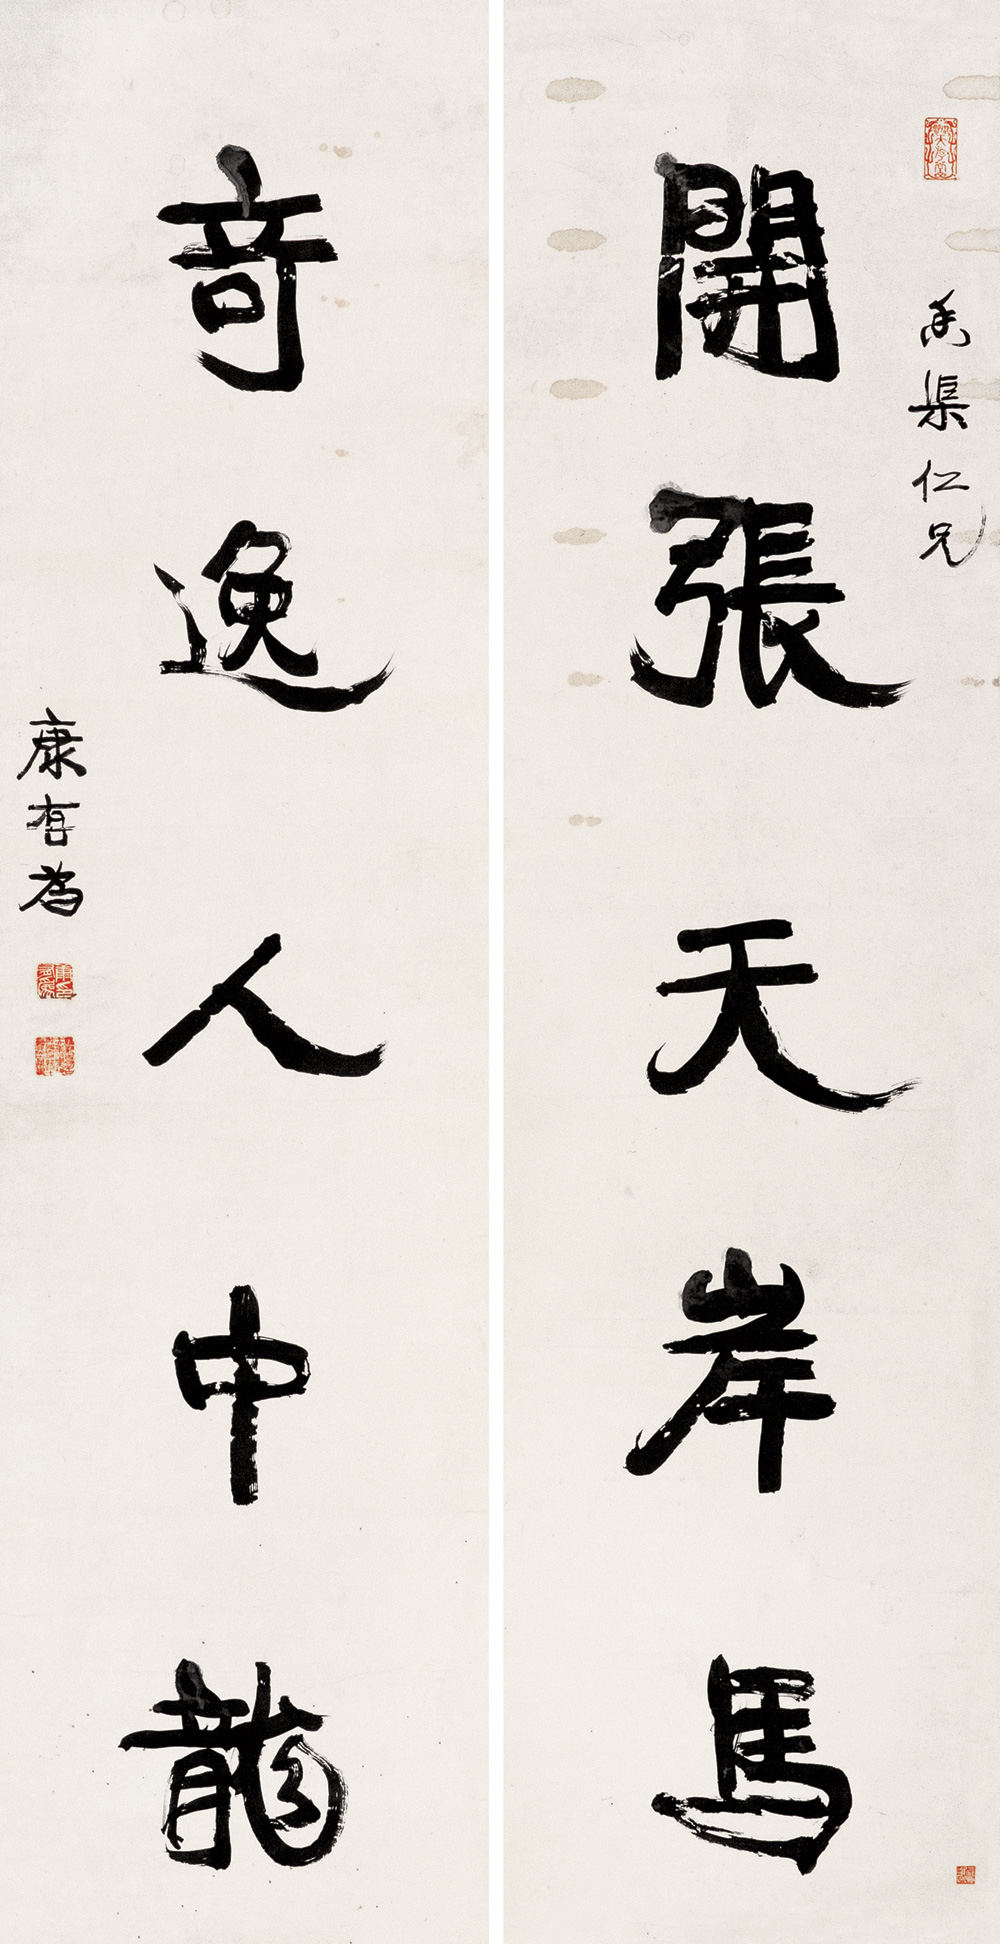 香渠仁兄
開張天岸馬
奇逸人中龍
康有為